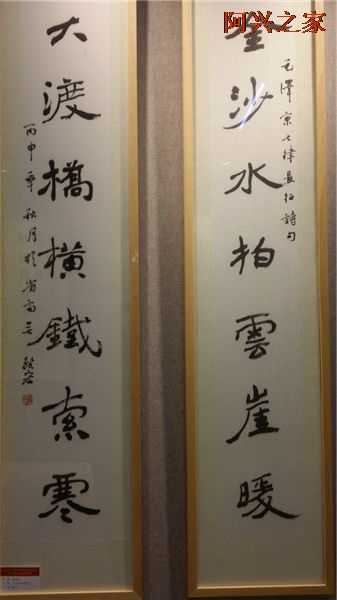 阿兴之家
毛澤東七律長征詩句
金沙水拍雲崖暖
大渡橋橫鐵索寒
丙申年秋月於省